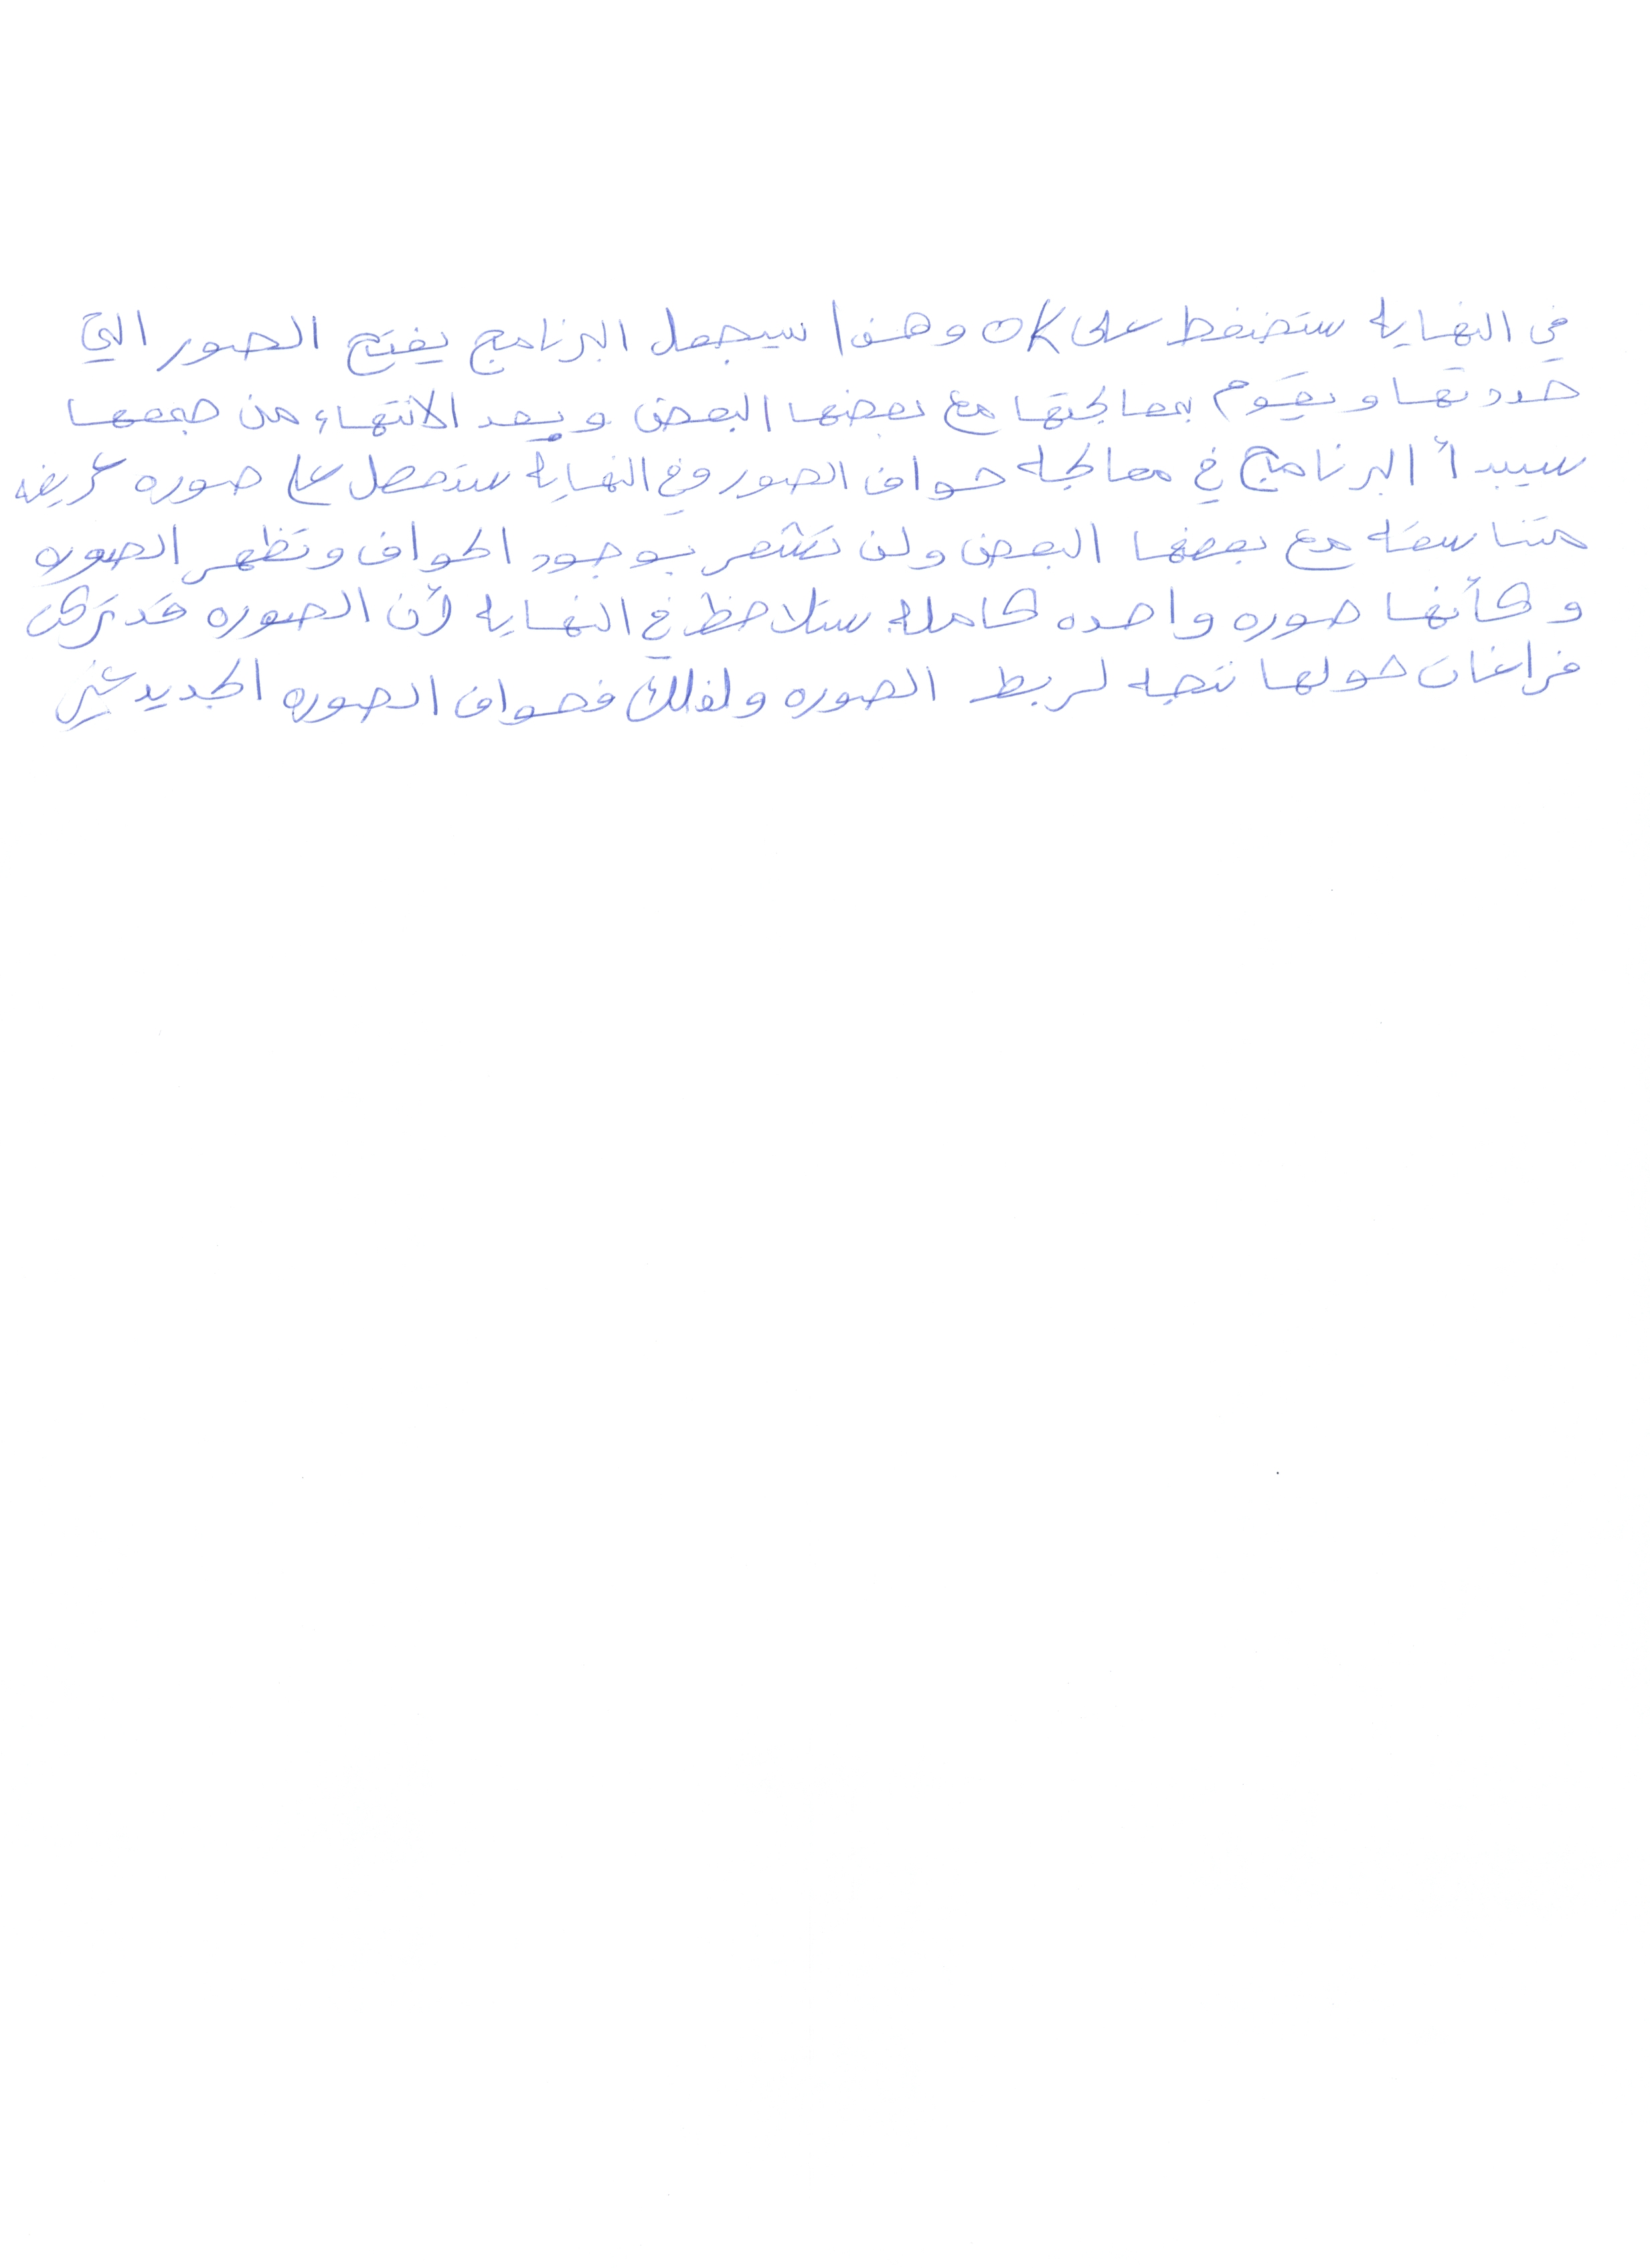 في النهايه ستضغط على OK وهذا سيجعل البرنامج يفتح الصور التي
حددتها ويقوم بمعالجتها مع بعضها البعض وبعد الانتهاء من جمعها
سيبدأ البرنامج في معالجه حواف الصور وفي النهايه ستحصل على صوره عريضه
متناسقه مع بعضها البعض ولن تشعر بوجود الحواف وتظهر الصوره
وكأنها صوره واحده كامله ستلاحظ في النهايه لأن الصوره قد تركت
فراغات حولها نتيجه لربط الصوره ولذلك فحواف الصوره الجديد غير